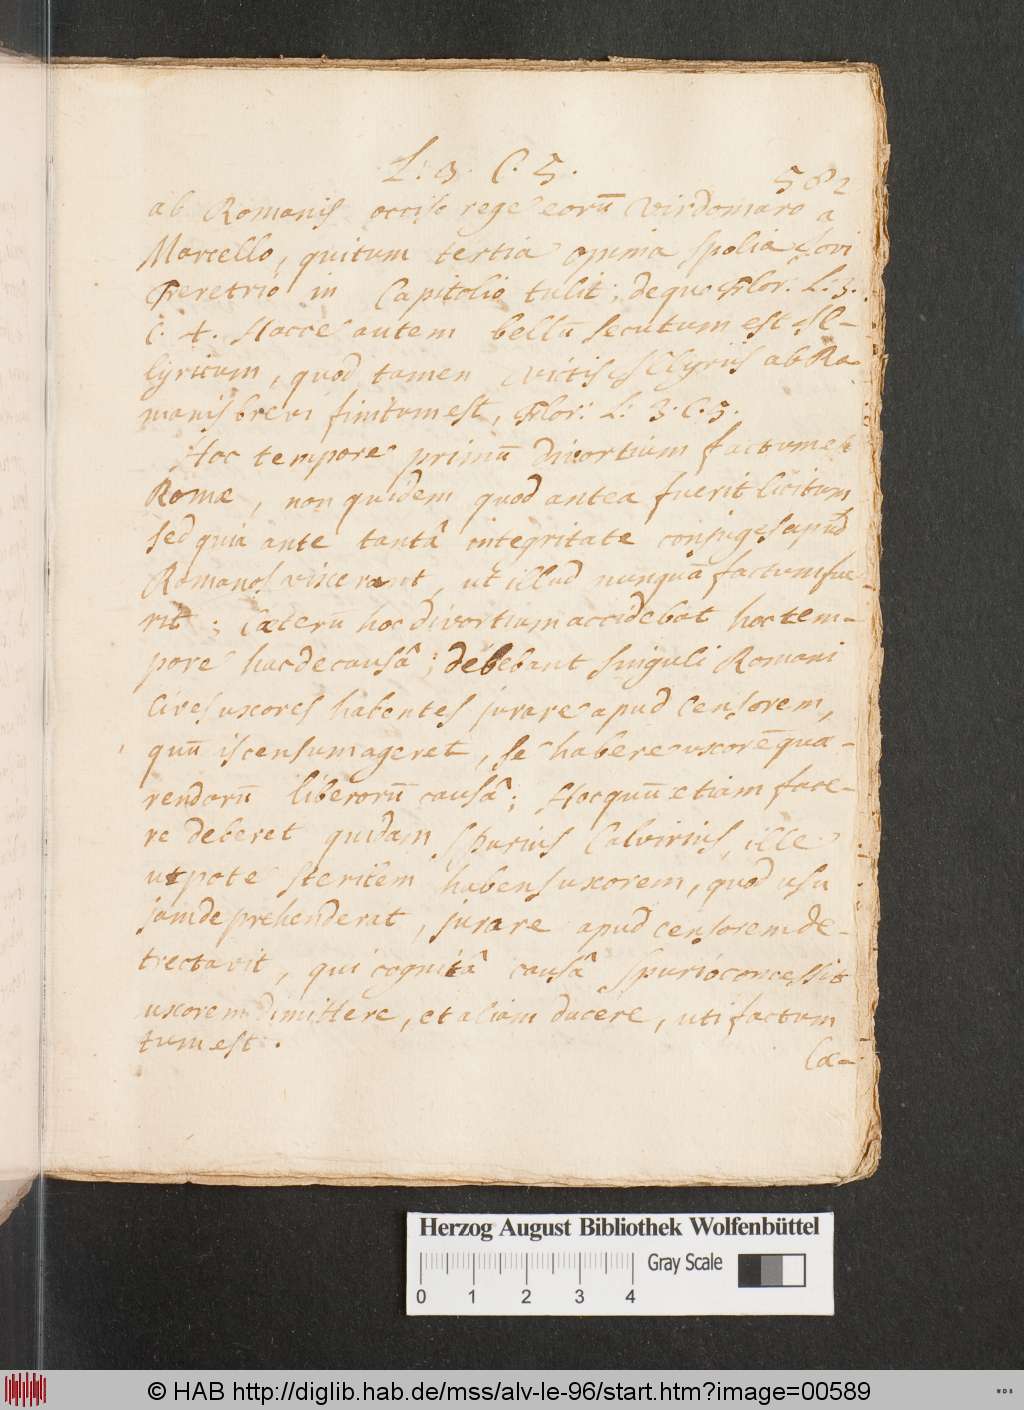 L: 3. C: 5.
582
ab Romanis occiso rege eorū Virdomaro a
Marcello, qui tum tertia opima spolia Iovi
Feretrio in Capitolio tulit; de quo Flor. L: 3.
C. 4. Hocce autem bellū secutum est Il-
lyricum, quod tamen victis Illyriis ab Ro-
manis brevi finitum est, Flor: L: 3. C. 5.
Hoc tempore primū divortium factum est
Romæ, non quidem quod antea fuerit licitum
sed quia ante tantâ integritate conjuges apud
Romanos vixerant, ut illud nunquā factum fue-
rit; Cæterū hoc divortium accidebat hoc tem-
pore hac de causâ; debebant singuli Romani
Cives uxores habentes jurare apud Censorem,
quū is censum ageret, se habere uxorē quæ-
rendorū liberorū causâ; Hoc quū etiam face-
re deberet quidam Spurius Calvirius, ille
utpote sterilem habens uxorem, quod usu
jam deprehenderat, jurare apud censorem de-
trectavit, qui cognitâ causâ Spurio concessit
uxorem dimittere, et aliam ducere, uti factum
tum est.
Cæ-
Herzog August Bibliothek Wolfenbüttel
Gray Scale
0 1 2 3 4
© HAB http://diglib.hab.de/mss/alv-le-96/start.htm?image=00589